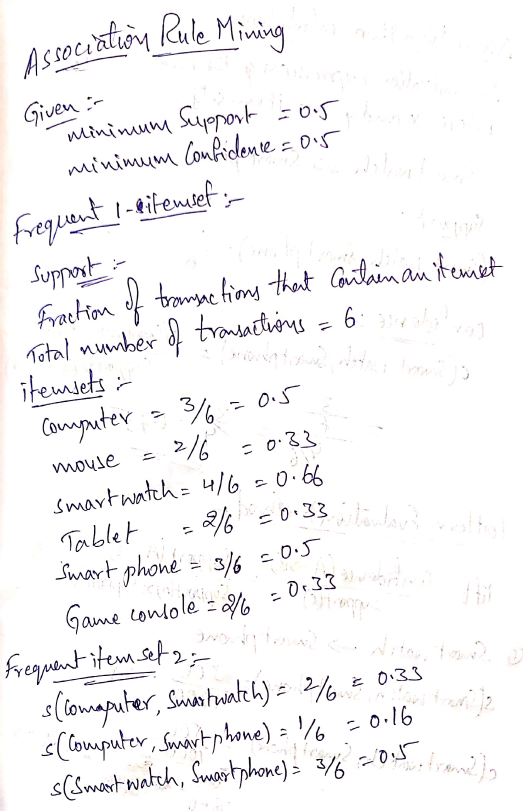 Association Rule Mining
Given :-
minimum Support = 0.5
minimum Confidence = 0.5
Frequent 1-itemset :-
Support :-
Fraction of transactions that contain an itemset
Total number of transactions = 6
itemsets :-
Computer = 3/6 = 0.5
mouse = 2/6 = 0.33
smartwatch = 4/6 = 0.66
Tablet = 2/6 = 0.33
Smart phone = 3/6 = 0.5
Game console = 2/6 = 0.33
Frequent item set 2 :-
s(Comaputer, Smartwatch) = 2/6 = 0.33
s(Computer, Smartphone) = 1/6 = 0.16
s(Smartwatch, Smartphone) = 3/6 = 0.5